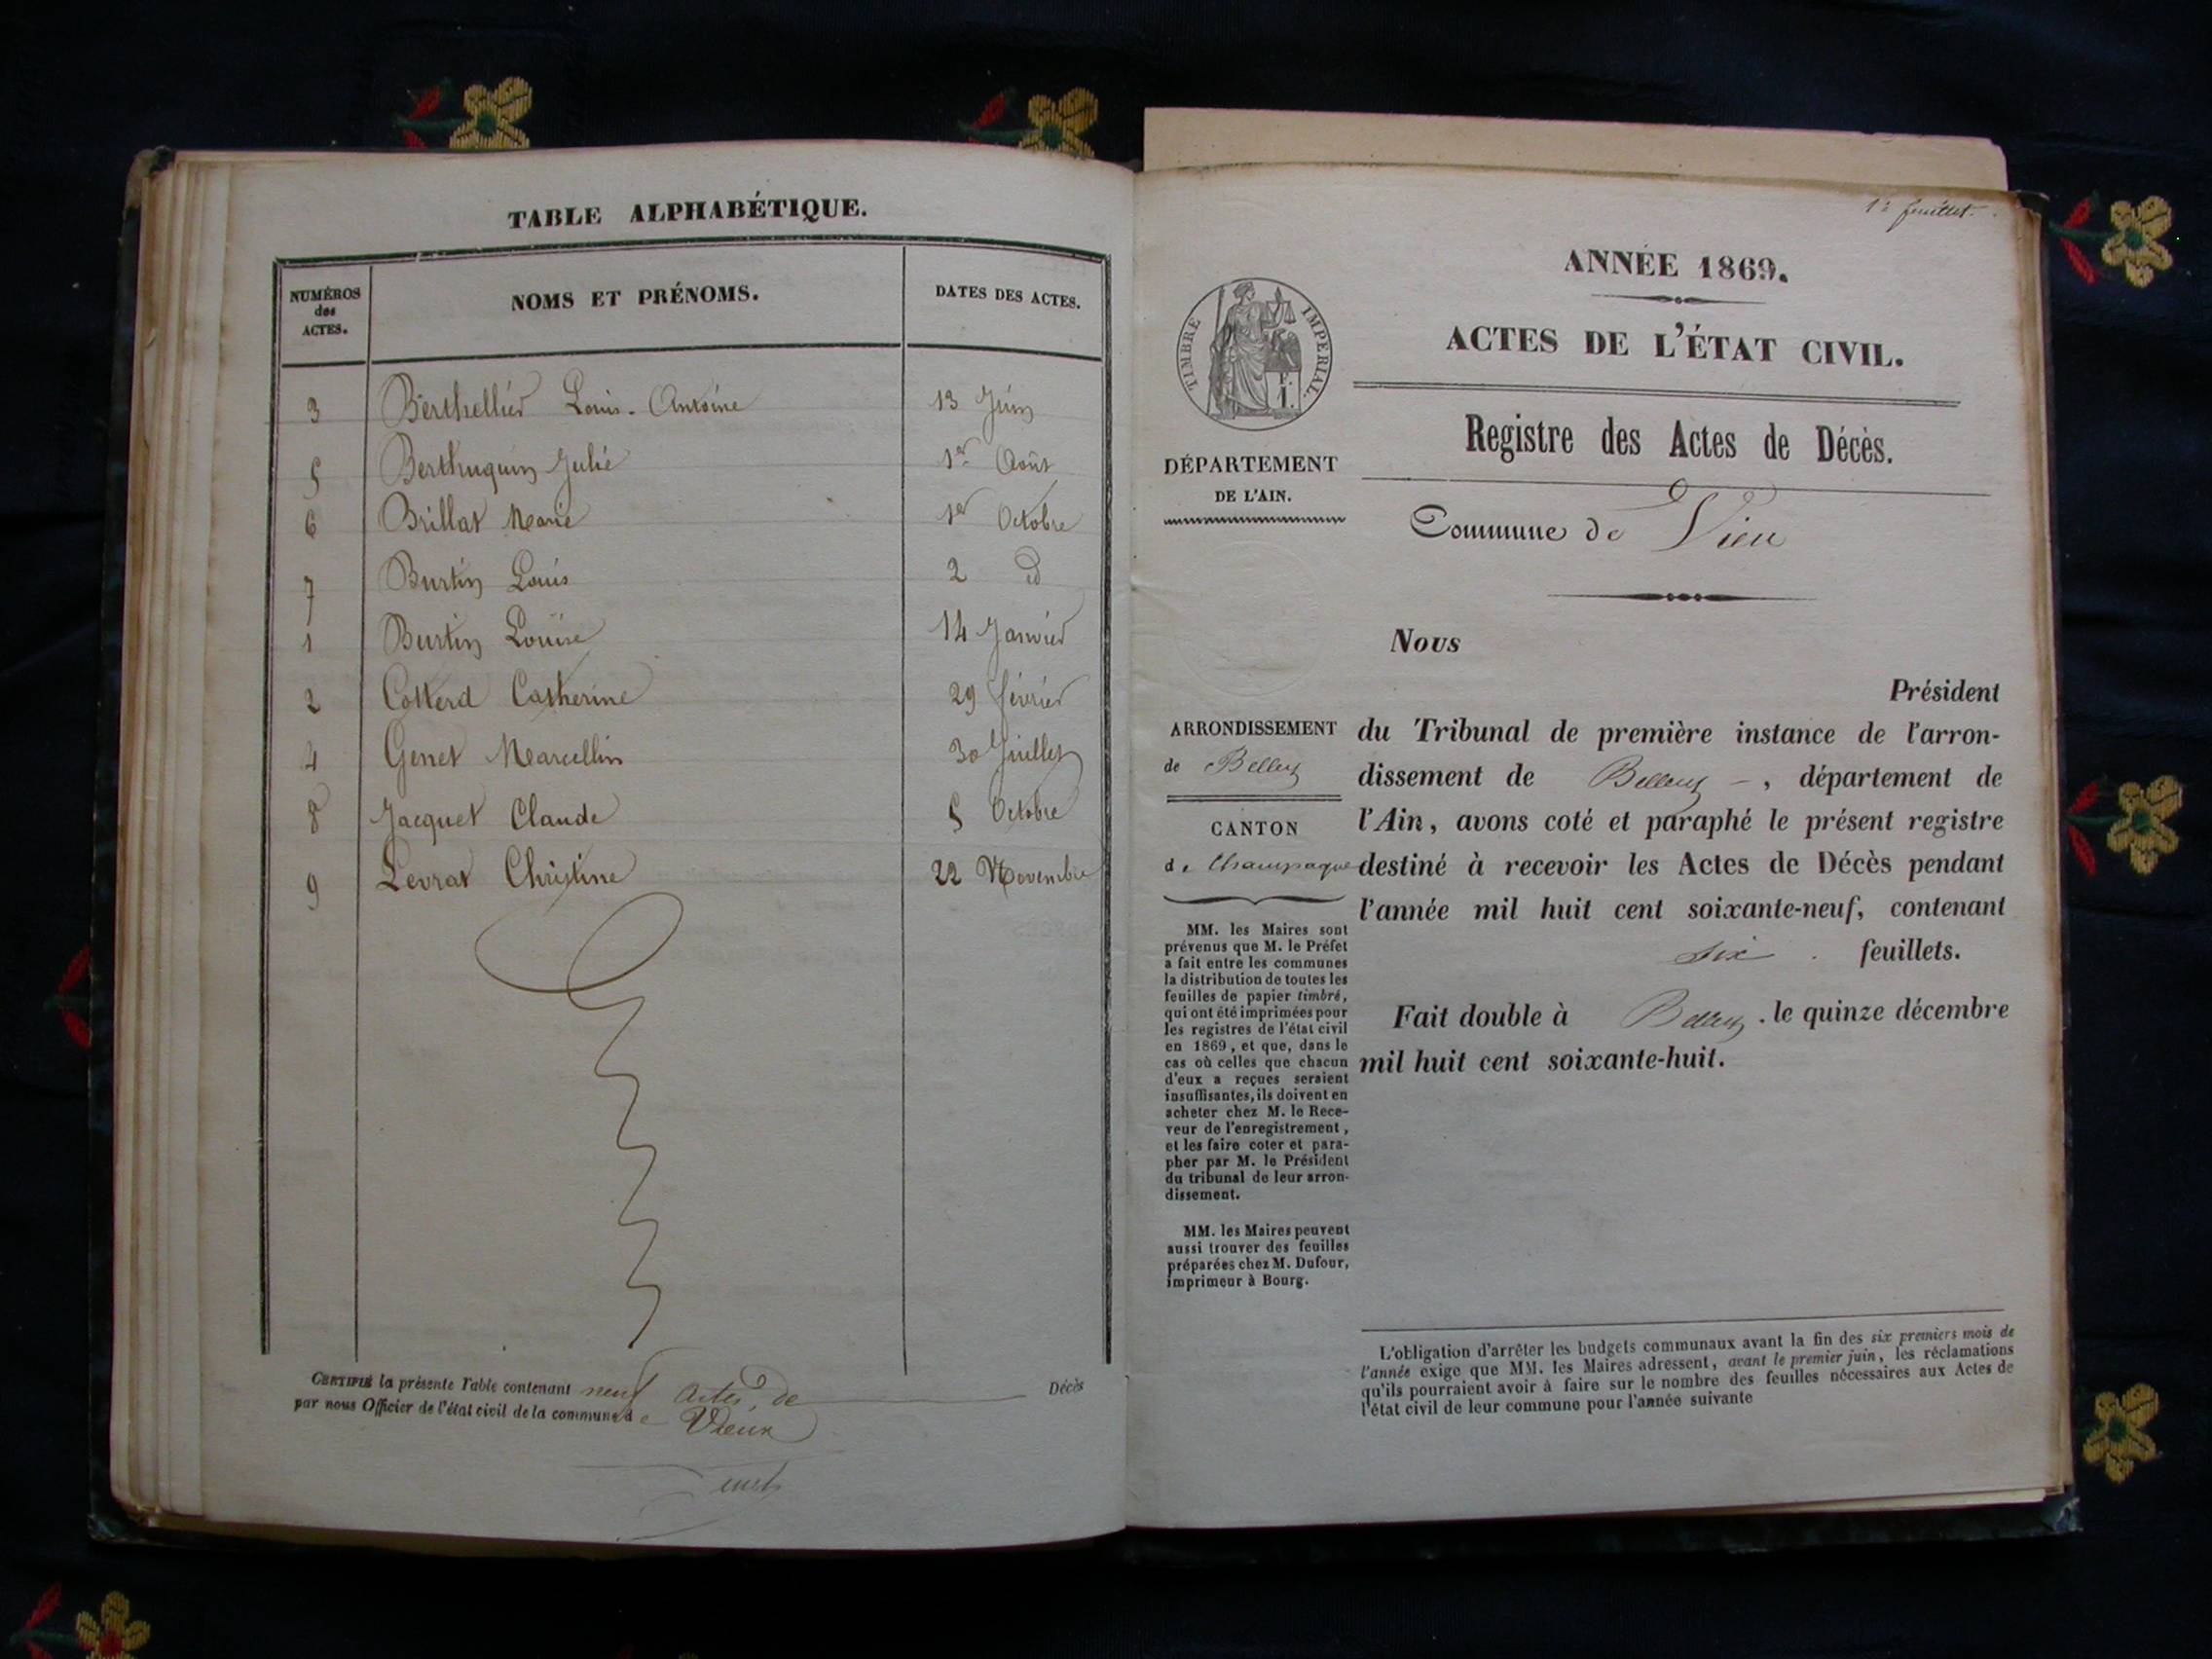 TABLE ALPHABÉTIQUE.
NUMÉROS
des
ACTES.
NOMS ET PRÉNOMS.
DATES DES ACTES.
3 Berthellier Louis-Antoine 13 Juin
5 Berthuguin Julie 1er Août
6 Brillat Marie 1er Octobre
7 Burtin Louis 2 id
1 Burtin Louise 14 Janvier
2 Cotterd Catherine 29 février
4 Genet Marcellin 30 Juillet
8 Jacquet Claude 5 Octobre
9 Levrat Christine 22 Novembre
CERTIFIÉ la présente Table contenant neuf actes de Décès
par nous Officier de l'état civil de la commune de Vieux
1er feuillet.
ANNÉE 1869.
ACTES DE L'ÉTAT CIVIL.
TIMBRE IMPERIAL.
Registre des Actes de Décès.
DÉPARTEMENT
DE L'AIN.
Commune de Vieu
Nous
Président
ARRONDISSEMENT
de Belley
CANTON
de Champagne
MM. les Maires sont
prévenus que M. le Préfet
a fait entre les communes
la distribution de toutes les
feuilles de papier timbré,
qui ont été imprimées pour
les registres de l'état civil
en 1869, et que, dans le
cas où celles que chacun
d'eux a reçues seraient
insuffisantes, ils doivent en
acheter chez M. le Rece-
veur de l'enregistrement,
et les faire coter et para-
pher par M. le Président
du tribunal de leur arron-
dissement.
MM. les Maires peuvent
aussi trouver des feuilles
préparées chez M. Dufour,
imprimeur à Bourg.
du Tribunal de première instance de l'arron-
dissement de Belley -, département de
l'Ain, avons coté et paraphé le présent registre
destiné à recevoir les Actes de Décès pendant
l'année mil huit cent soixante-neuf, contenant
six feuillets.
Fait double à Belley. le quinze décembre
mil huit cent soixante-huit.
L'obligation d'arrêter les budgets communaux avant la fin des six premiers mois de
l'année exige que MM. les Maires adressent, avant le premier juin, les réclamations
qu'ils pourraient avoir à faire sur le nombre des feuilles nécessaires aux Actes de
l'état civil de leur commune pour l'année suivante